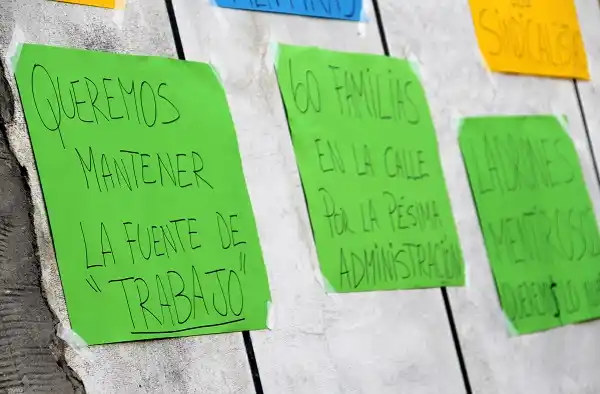 QUEREMOS
MANTENER
LA FUENTE DE
"TRABAJO"
60 FAMILIAS
EN LA CALLE
POR LA PÉSIMA
ADMINISTRACIÓN
LADRONES
MENTIROSOS
QUEREMOS LO
SINDICACIÓN